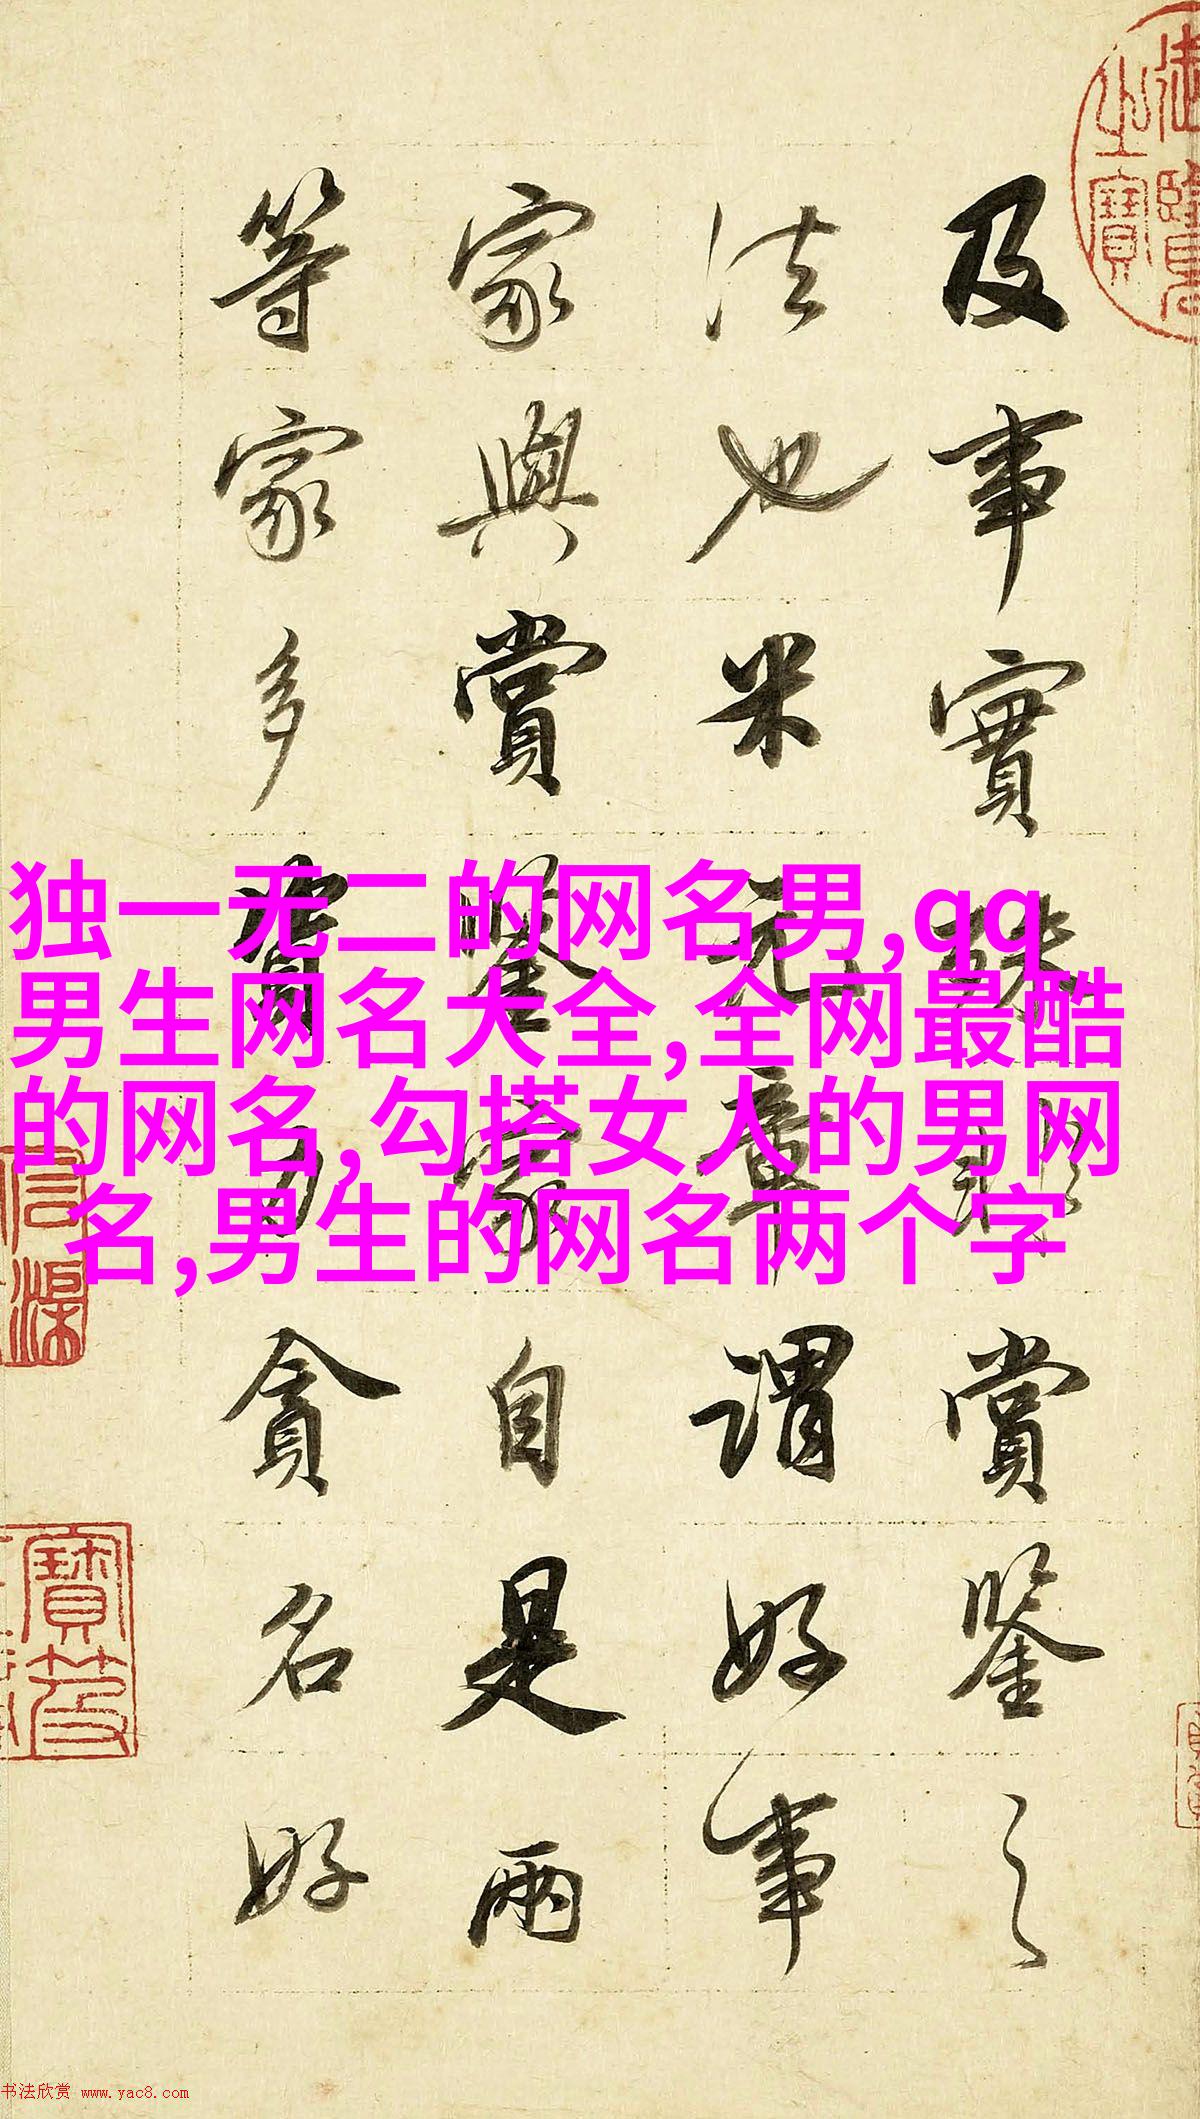 及事實賞鑒之
法也米元章謂好事
家與賞鑒家自是兩
等家多資力貪名好
独一无二的网名男,qq
男生网名大全,全网最酷
的网名,勾搭女人的男网
名,男生的网名两个字
书法欣赏 www.yac8.com